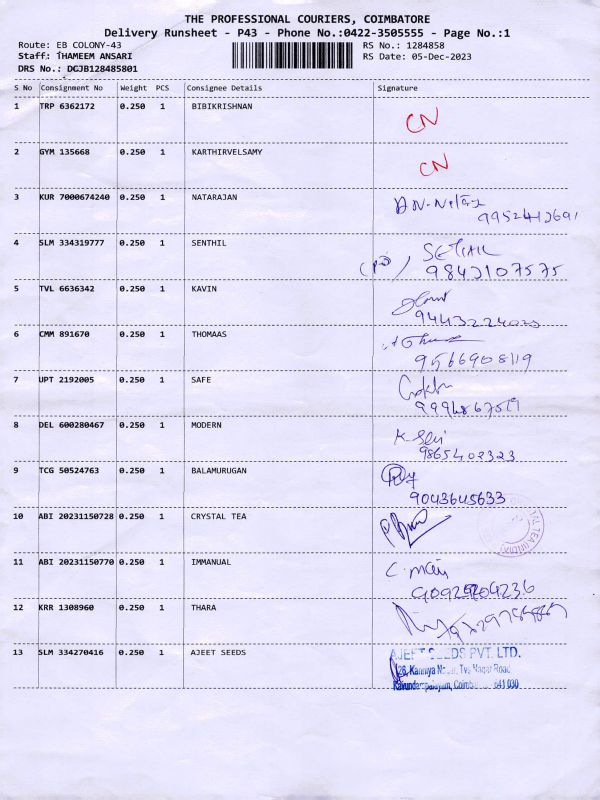 THE PROFESSIONAL COURIERS, COIMBATORE
Delivery Runsheet - P43 - Phone No.:0422-3505555 - Page No.:1
Route: EB COLONY-43 RS No.: 1284858
Staff: THAMEEM ANSARI RS Date: 05-Dec-2023
DRS No.: DGJB128485801
S No Consignment No Weight PCS Consignee Details Signature
1 TRP 6362172 0.250 1 BIBIKRISHNAN
CN
2 GYM 135668 0.250 1 KARTHIRVELSAMY
CN
3 KUR 7000674240 0.250 1 NATARAJAN
9952412691
4 SLM 334319777 0.250 1 SENTHIL
9843107575
5 TVL 6636342 0.250 1 KAVIN
6 CMM 891670 0.250 1 THOMAAS
9566908119
7 UPT 2192005 0.250 1 SAFE
8 DEL 600280467 0.250 1 MODERN
9865402323
9 TCG 50524763 0.250 1 BALAMURUGAN
9043645633
10 ABI 20231150728 0.250 1 CRYSTAL TEA
11 ABI 20231150770 0.250 1 IMMANUAL
12 KRR 1308960 0.250 1 THARA
13 SLM 334270416 0.250 1 AJEET SEEDS
AJEET SEEDS PVT. LTD.
26, Kanniya Road
641 030